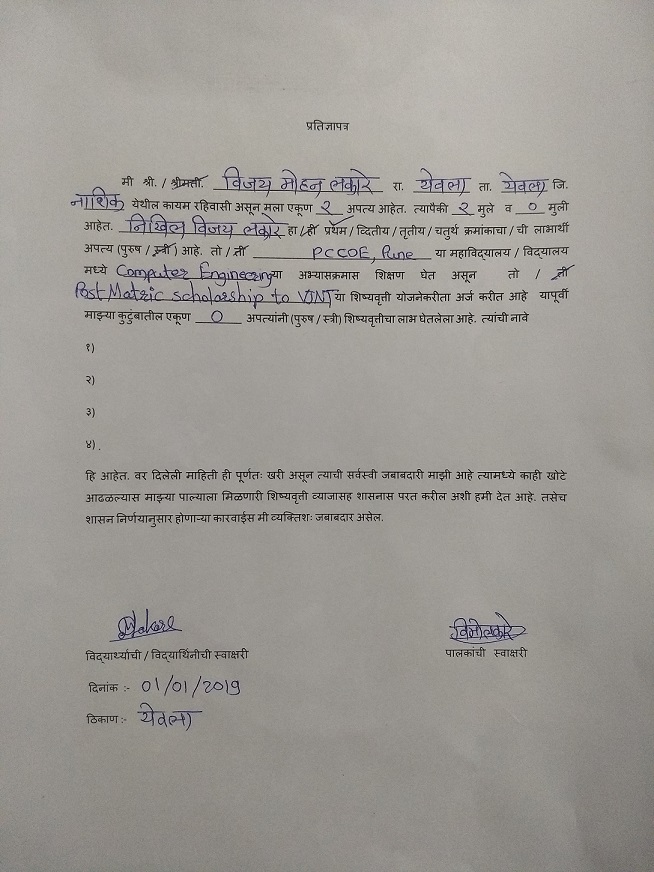 प्रतिज्ञापत्र
मी श्री. / श्रीमती. विजय मोहन लकारे रा. येवला ता. येवला जि.
नाशिक येथील कायम रहिवासी असून मला एकूण २ अपत्य आहेत. त्यापैकी २ मुले व ० मुली
आहेत. निखिल विजय लकारे हा / ही प्रथम / व्दितीय / तृतीय / चतुर्थ क्रमांकाचा / ची लाभार्थी
अपत्य (पुरुष / स्त्री) आहे. तो / ती PCCOE, Pune या महाविद्यालय / विद्यालय
मध्ये Computer Engineering या अभ्यासक्रमास शिक्षण घेत असून तो / ती
Post Matric scholarship to VJNT या शिष्यवृत्ती योजनेकरीता अर्ज करीत आहे यापूर्वी
माझ्या कुटुंबातील एकूण 0 अपत्यांनी (पुरुष / स्त्री) शिष्यवृत्तीचा लाभ घेतलेला आहे. त्यांची नावे
१)
२)
३)
४) .
हि आहेत. वर दिलेली माहिती ही पूर्णतः खरी असून त्याची सर्वस्वी जबाबदारी माझी आहे त्यामध्ये काही खोटे
आढळल्यास माझ्या पाल्याला मिळणारी शिष्यवृत्ती व्याजासह शासनास परत करील अशी हमी देत आहे. तसेच
शासन निर्णयानुसार होणाऱ्या कारवाईस मी व्यक्तिशः जबाबदार असेल.
विद्यार्थ्याची / विद्यार्थिनीची स्वाक्षरी पालकांची स्वाक्षरी
दिनांक :- 01/01/2019
ठिकाण :- येवला